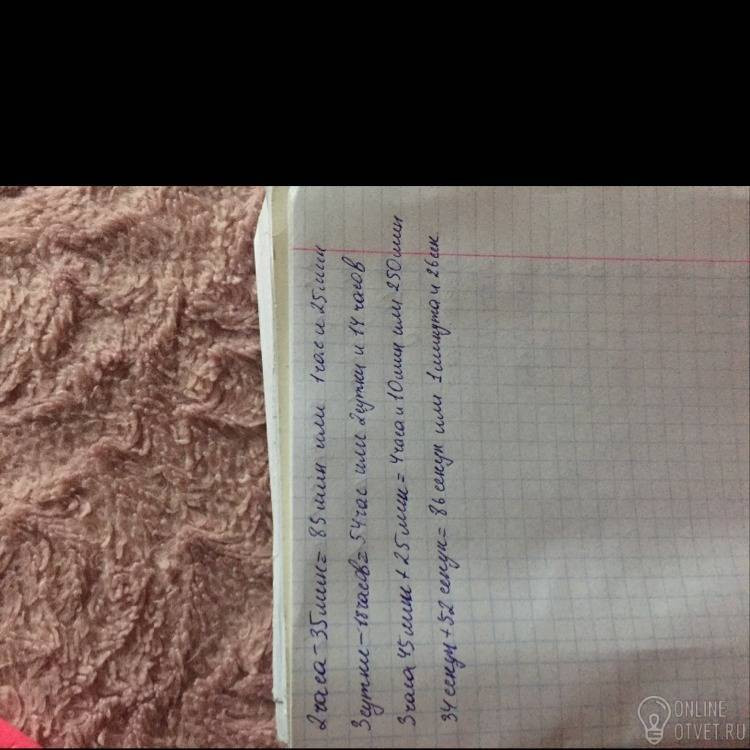 2 часа - 35 мин = 85 мин или 1 час и 25 мин
3 сутки - 18 часов = 54 час или 2 сутки и 14 часов
3 часа 45 мин + 25 мин = 4 часа и 10 мин или 250 мин
34 секун + 52 секун = 86 секун или 1 минута и 26 сек.
ONLINE
OTVET.RU